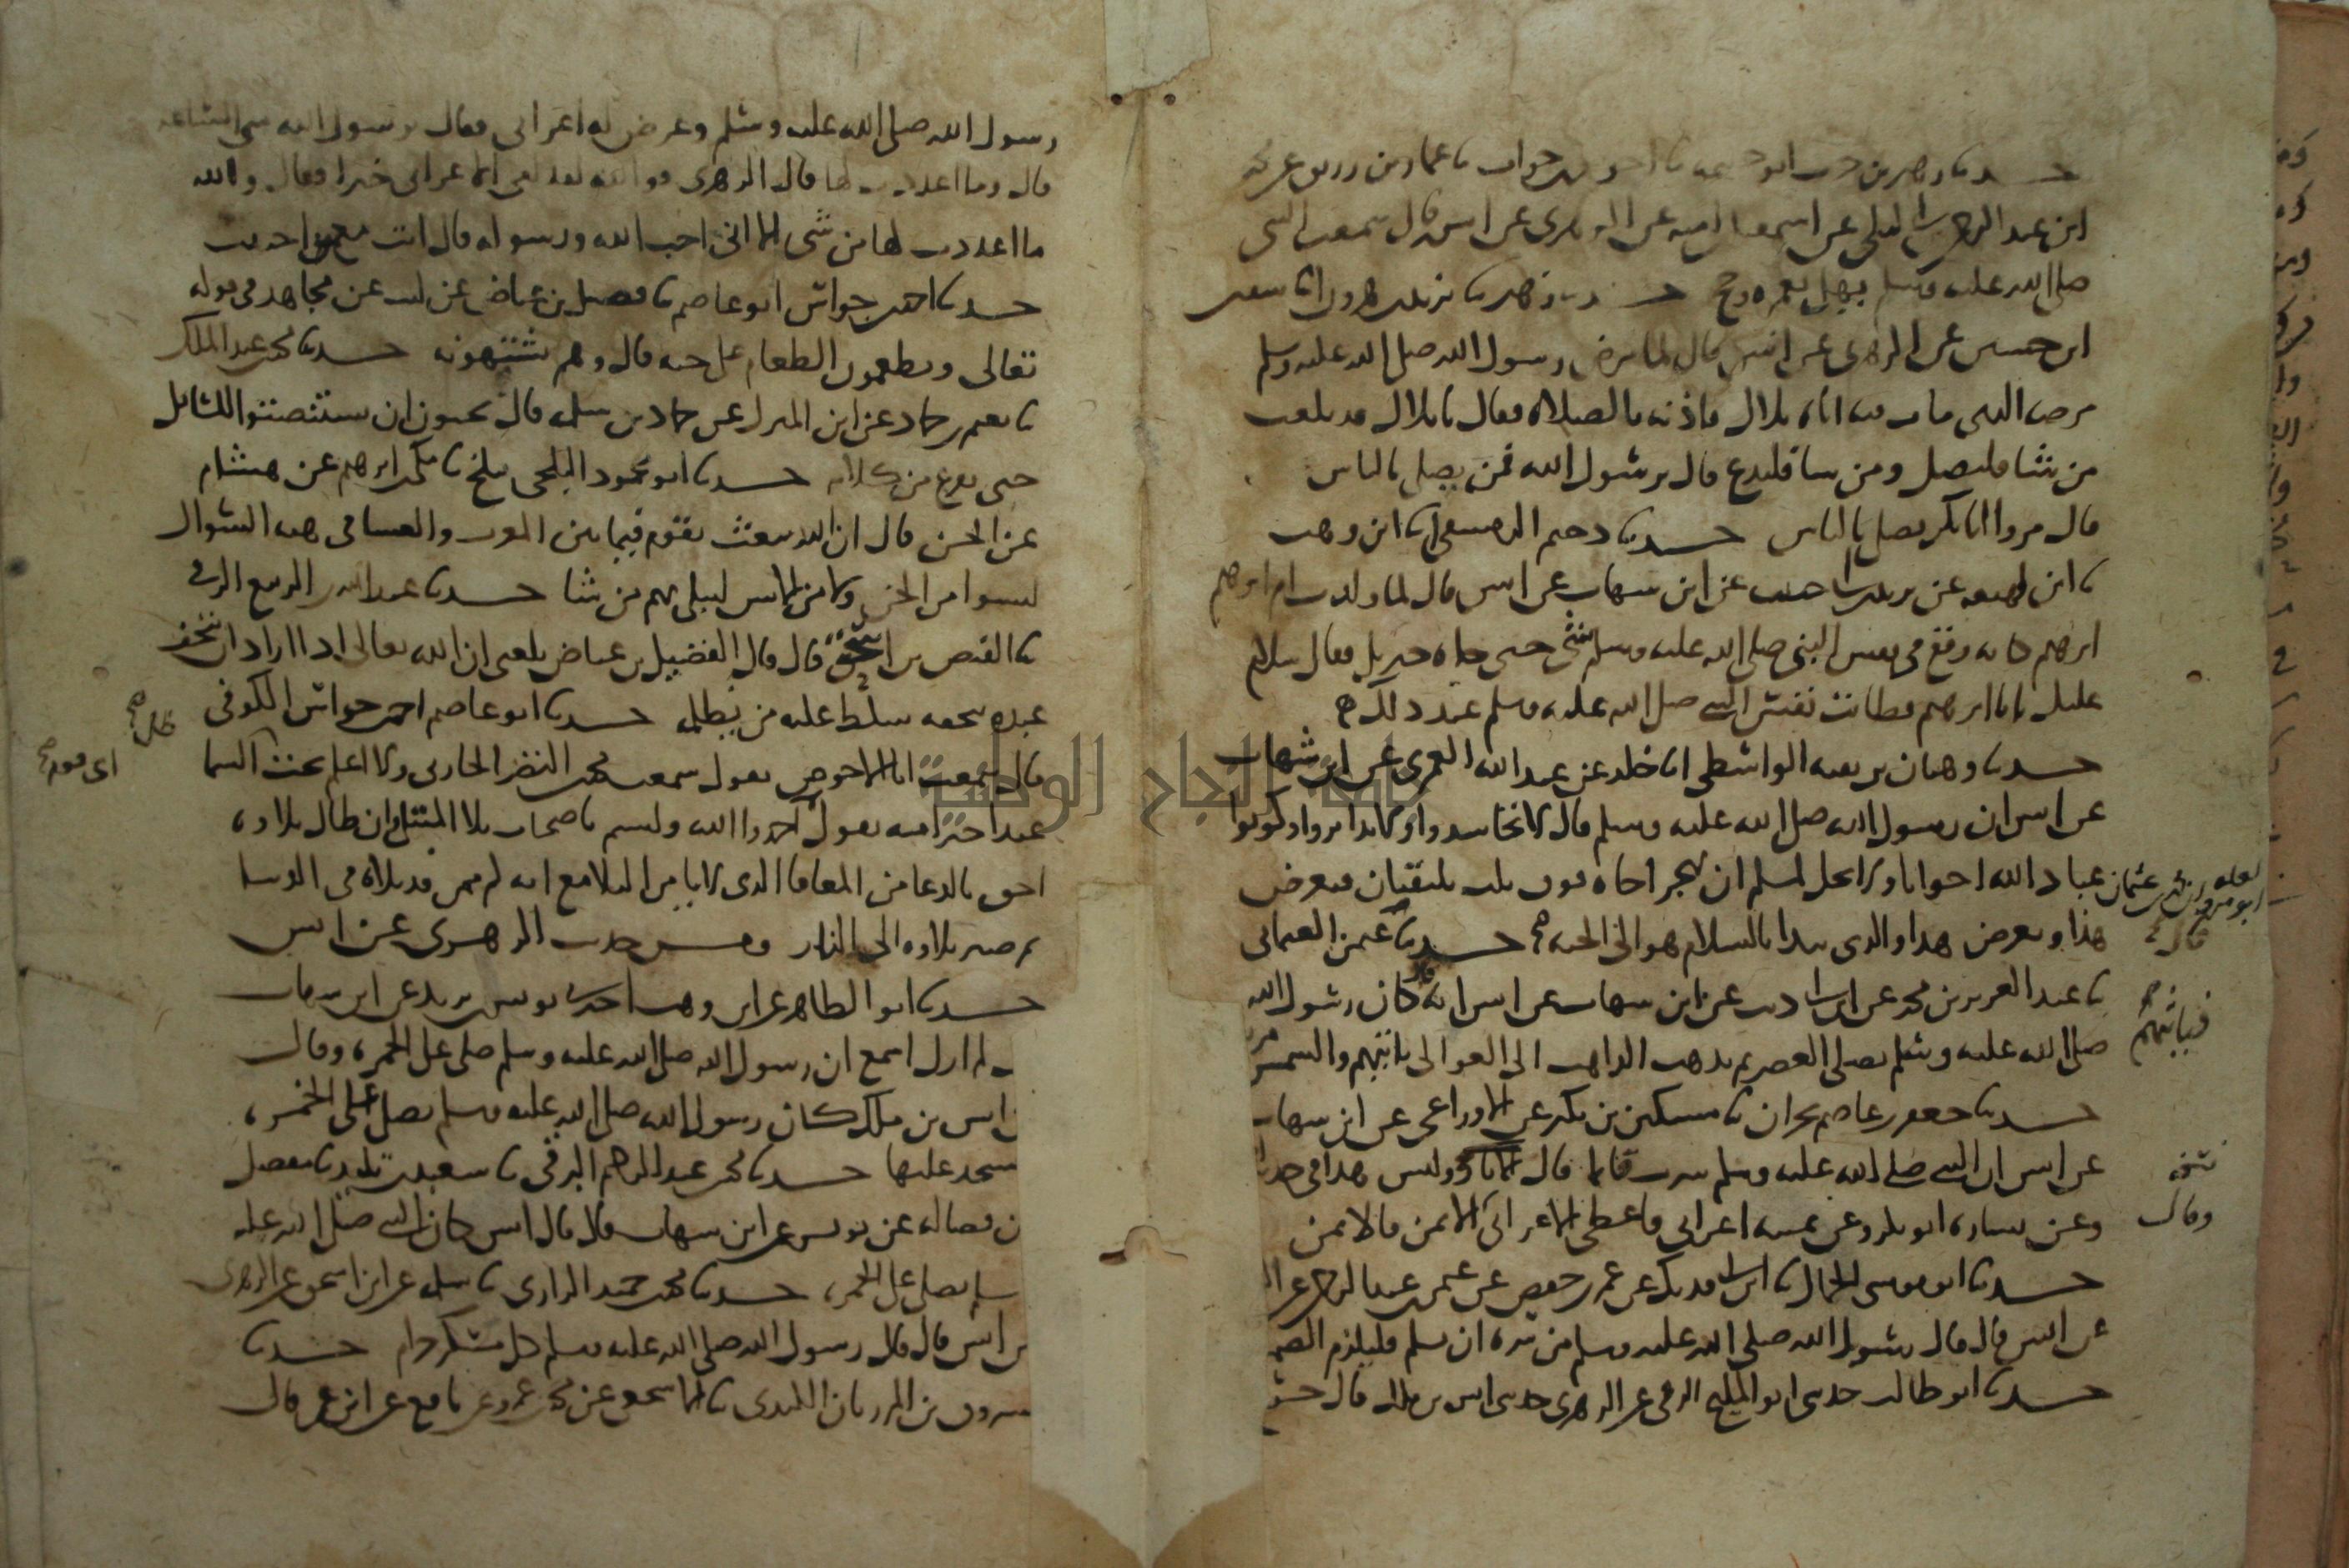 حدثنا زهير بن حرب ابو خيثمه نا احوص بن جواب نا عمار بن رزيق عن محمد
ابن عبد الرحمن بن ابي ليلى عن اسمعيل بن اميه عن الزهري عن انس قال سمعت النبي
صلى الله عليه وسلم يهل بعمره وحج حدثنا زهير نا يزيد بن هرون انا سفين
ابن حسين عن الزهري عن انس قال لما مرض رسول الله صلى الله عليه وسلم
مرضه الذي مات فيه اتاه بلال فاذنه بالصلاه فقال يا بلال قد بلغت
من شا فليصل ومن شا فليدع قال يرسول الله فمن يصلي بالناس
قال مروا ابا بكر يصل بالناس حدثنا دحيم الدمشقي نا ابن وهب
نا ابن لهيعه عن يزيد بن ابي حبيب عن ابن شهاب عن انس قال لما ولدت ام ابرهيم
ابرهيم كانه وقع في نفس النبي صلى الله عليه وسلم شي حتى جاه جبريل فقال سلام
عليك يابا ابرهيم فطابت نفس النبي صلى الله عليه وسلم عند ذلك
حدثنا وهبان بن بقيه الواسطي انا خلد عن عبد الله العمري عن ابن شهاب
عن انس ان رسول الله صلى الله عليه وسلم قال لا تحاسدوا ولا تدابروا وكونوا
عباد الله اخوانا ولا يحل لمسلم ان يهجر اخاه فوق ثلث يلتقيان فيعرض
هذا ويعرض هذا والذي يبدا بالسلام هو الى الجنه حدثنا عثمن العثماني
نا عبد العزيز بن محمد عن ابن ابي ذئب عن ابن شهاب عن انس انه قال كان رسول الله
صلى الله عليه وسلم يصلي العصر ثم يذهب الذاهب الى العوالي ياتيهم والشمس
حدثنا جعفر بن عاصم بحران نا مسكين بن بكير عن الاوزاعي عن ابن شهاب
عن انس ان النبي صلى الله عليه وسلم شرب قايما قال وليس هذا في
وعن يساره ابو بكر وعن يمينه اعرابي فاعطى الاعرابي الايمن فالايمن
حدثنا ابو موسى الحمال نا ابن ابي فديك عن عمر بن حفص عن عثمن بن عبد الرحمن عن
عن انس قال قال رسول الله صلى الله عليه وسلم من سره ان يسلم فليلزم الصمت
حدثنا ابو طالب حدثني ابو المليح الرقي عن الزهري حدثني انس بن ملك قال
لعله
ابو مروان محمد بن عثمان
قال
فياتيهم
نسخه
وقال
رسول الله صلى الله عليه وسلم وعرض له اعرابي فقال يرسول الله متى الساعه
قال وما اعددت لها قال الزهري فوالله لقد لقي الاعرابي خيرا فقال والله
ما اعددت لها من شي الا اني احب الله ورسوله قال انت مع من احببت
حدثنا احمد بن جواس ابو عاصم نا فضيل بن عياض عن ليث عن مجاهد في قوله
تعالى ويطعمون الطعام على حبه قال وهم يشتهونه حدثنا محمد بن عبد الملك
نا نعيم بن حماد عن ابن المبرك عن حماد بن سلمه قال يحبون ان يستنصتوا للسايل
حتى يفرغ من كلامه حدثنا ابو محمود البلخي ببلخ نا مكي بن ابرهيم عن هشام
عن الحسن قال ان الله يبعث يقوم فيما بين المغرب والعشا في هيه السوال
ليسوا من الجن ولا من الانس ليبلي بهم من شا حدثنا عبد الله بن الربيع
نا الفيض بن اسحق قال قال الفضيل بن عياض بلغني ان الله تعالى اذا اراد ان يتحف
عبده بتحفه سلط عليه من يظلمه حدثنا ابو عاصم احمد بن جواس الكوفي
قال سمعت ابا الاحوص يقول سمعت محمد بن النضر الحارثي ولا اعلم تحت السما
عبدا خيرا منه يقول احمدوا الله وليس يا صحاب بلا المبتلى وان طال بلاوه
احق بالدعا من المعافا الذي لا يامن البلا مع انه لم يمض قد بلاه في الدنيا
ثم صير بلاوه الى النار ومن حديث الزهري عن انس
حدثنا ابو الطاهر عن ابن وهب اخبرني يونس بن يزيد عن ابن شهاب
لم ازل اسمع ان رسول الله صلى الله عليه وسلم صلى على الخمره وقال
انس بن ملك كان رسول الله صلى الله عليه وسلم يصلي على الخمره
يسجد عليها حدثنا محمد بن عبد الرحيم البرقي نا سعيد بن تليد نا مفضل
بن فضاله عن يونس عن ابن شهاب قال قال انس كان النبي صلى الله عليه
وسلم يصلي على الخمره حدثنا محمد بن حميد الرازي نا سلمه عن ابن اسحق عن الزهري
عن انس قال قال رسول الله صلى الله عليه وسلم كل مسكر حرام حدثنا
مسروق بن المرزبان الكندي نا عن محمد بن عمرو عن نافع عن ابن عمر قال